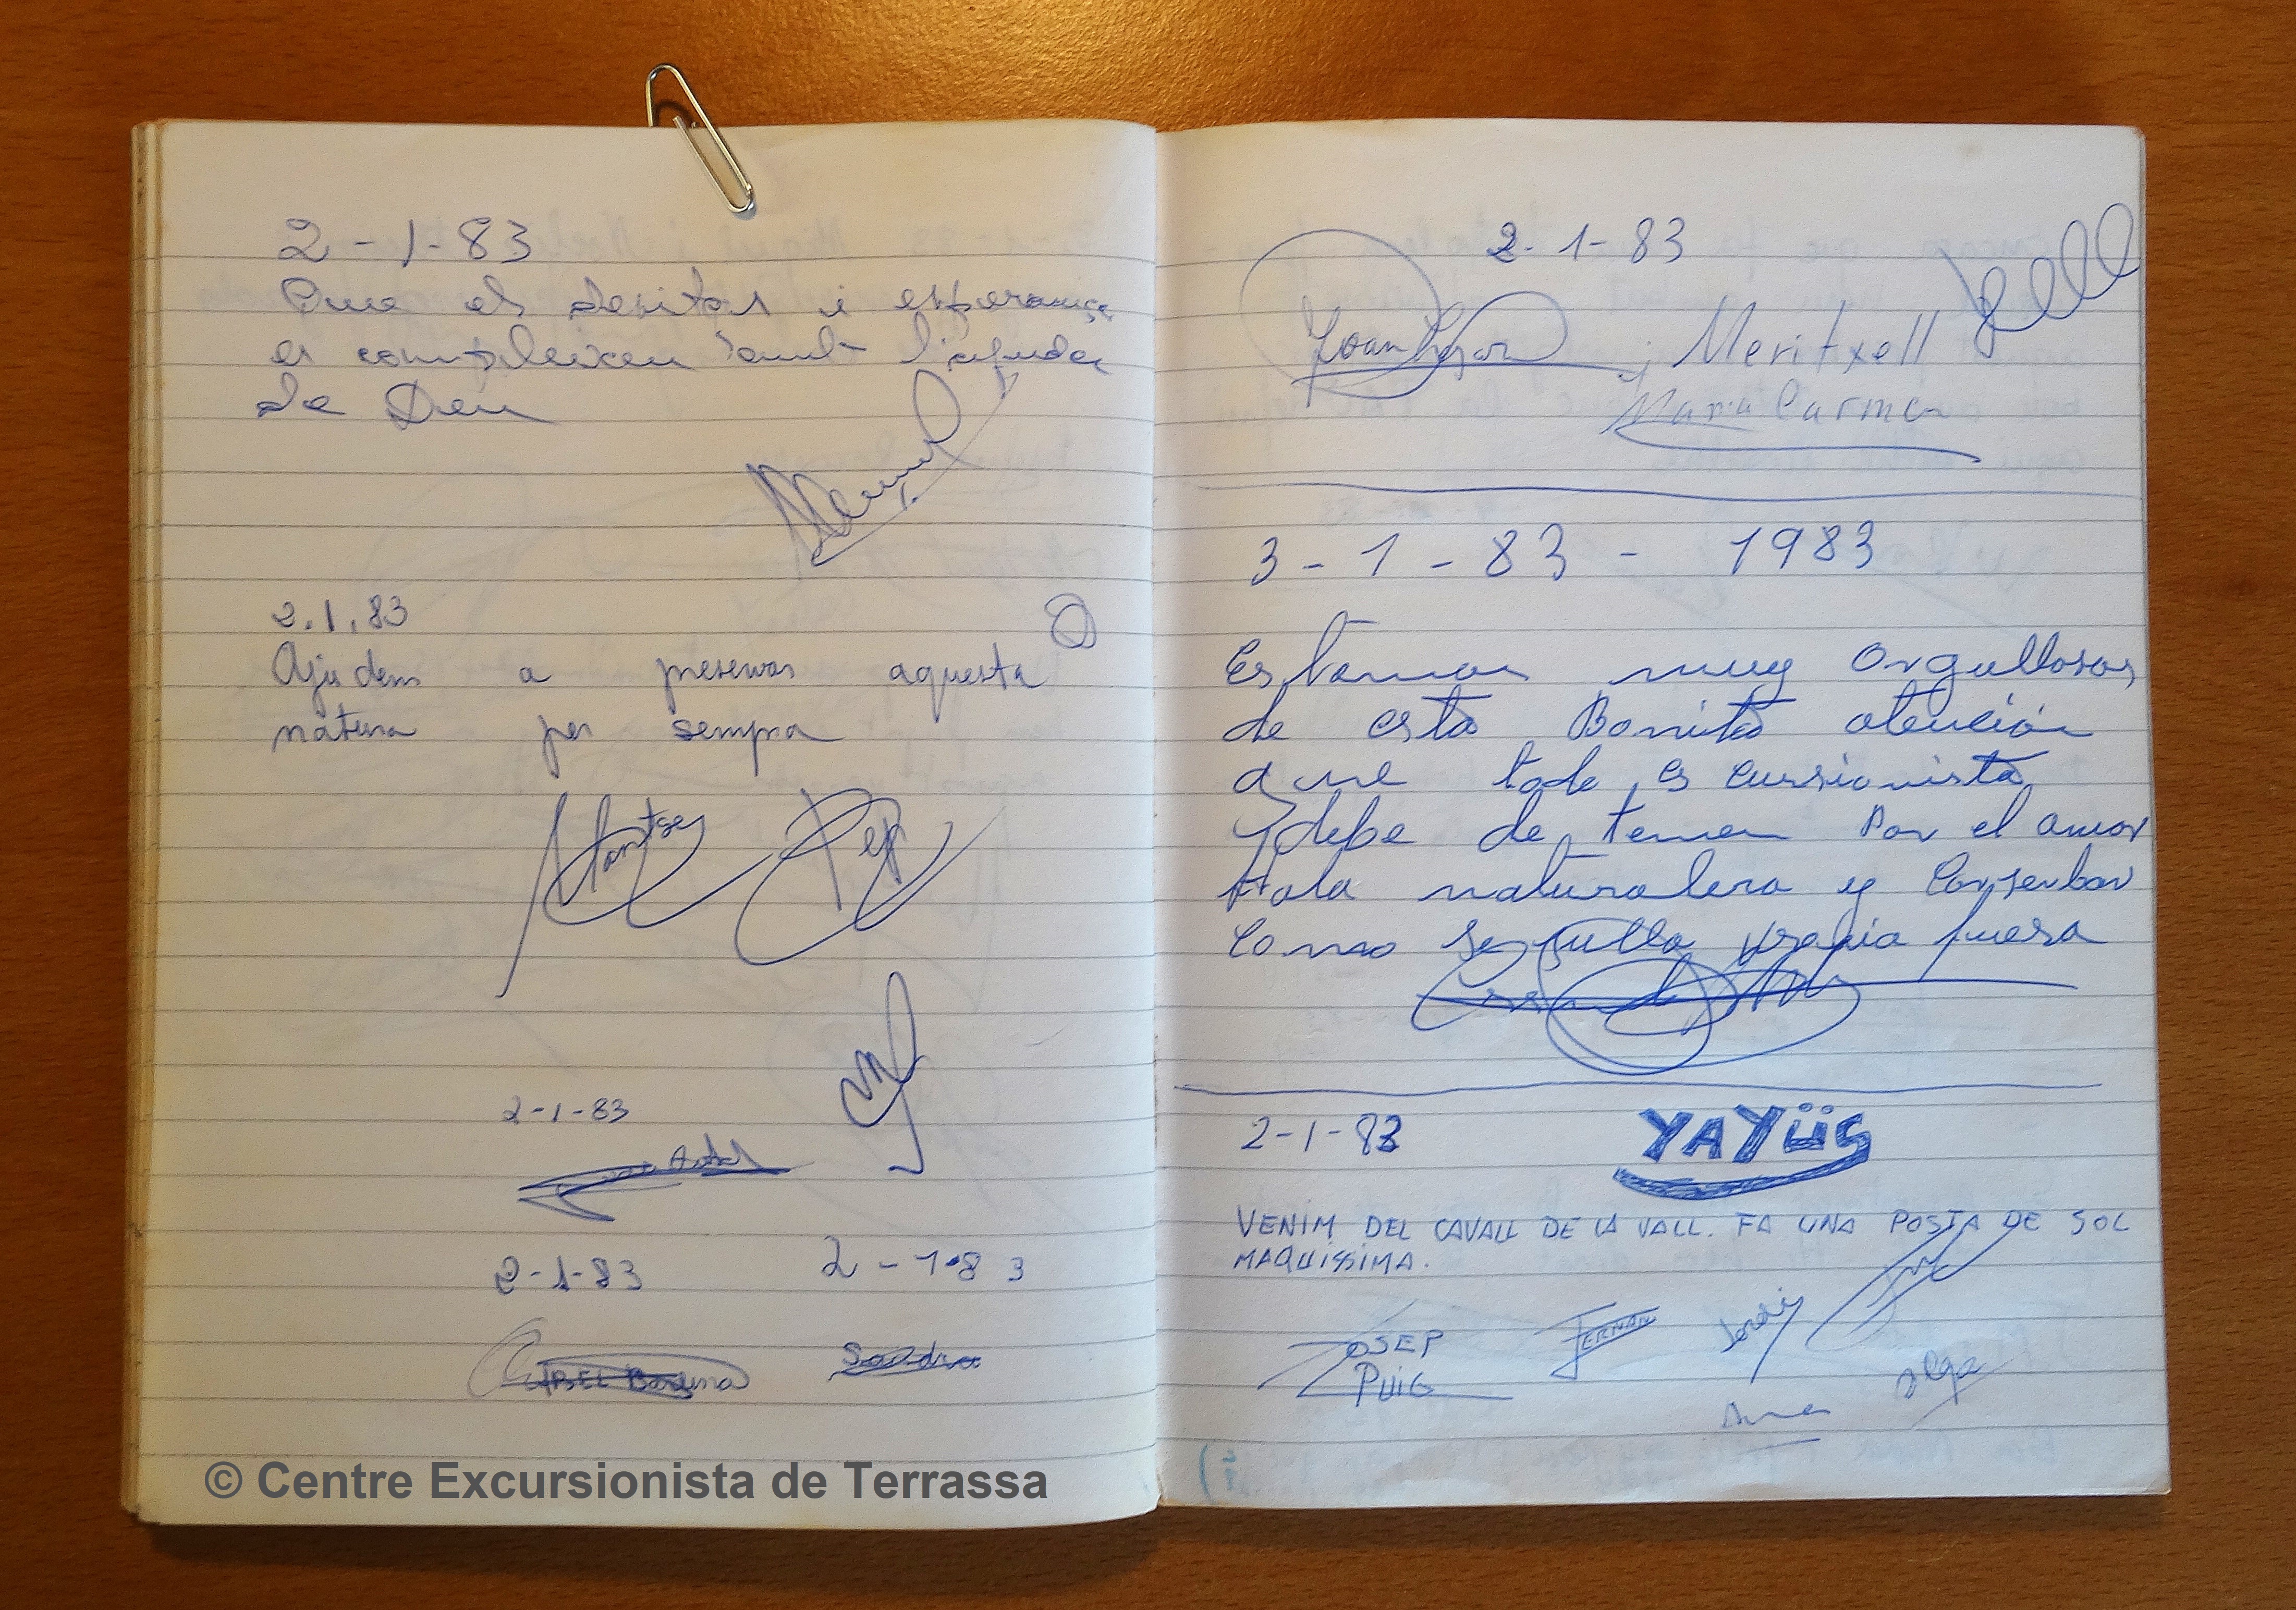 2-1-83
Que els desitos i esperança
es compleixen amb l'ajuda
de Deu
Manuel
2.1.83
Ajudem a preservar aquesta
natura per sempra
Montse Pep
2-1-83
2-1-83 2-1-83
ABEL Sandra
© Centre Excursionista de Terrassa
2-1-83
Joan i Meritxell
Maria Carmen
3-1-83 - 1983
Estamos muy orgullosos
de esta Bonita atención
que todo escursionista
debe de tener Por el amor
a la naturalera y Conserbar
Como se sulla propia fuera
2-1-83 YAYÜS
VENIM DEL CAVALL DE LA VALL. FA UNA POSTA DE SOL
MAQUISSIMA.
JOSEP FERRAN Jordi
PUIG Anna Olga